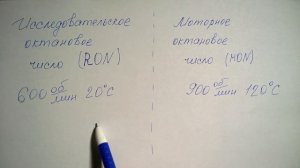 Исследовательское
октановое
число (RON)
600 об/мин 20°C
Моторное
октановое
число (MON)
900 об/мин 120°C